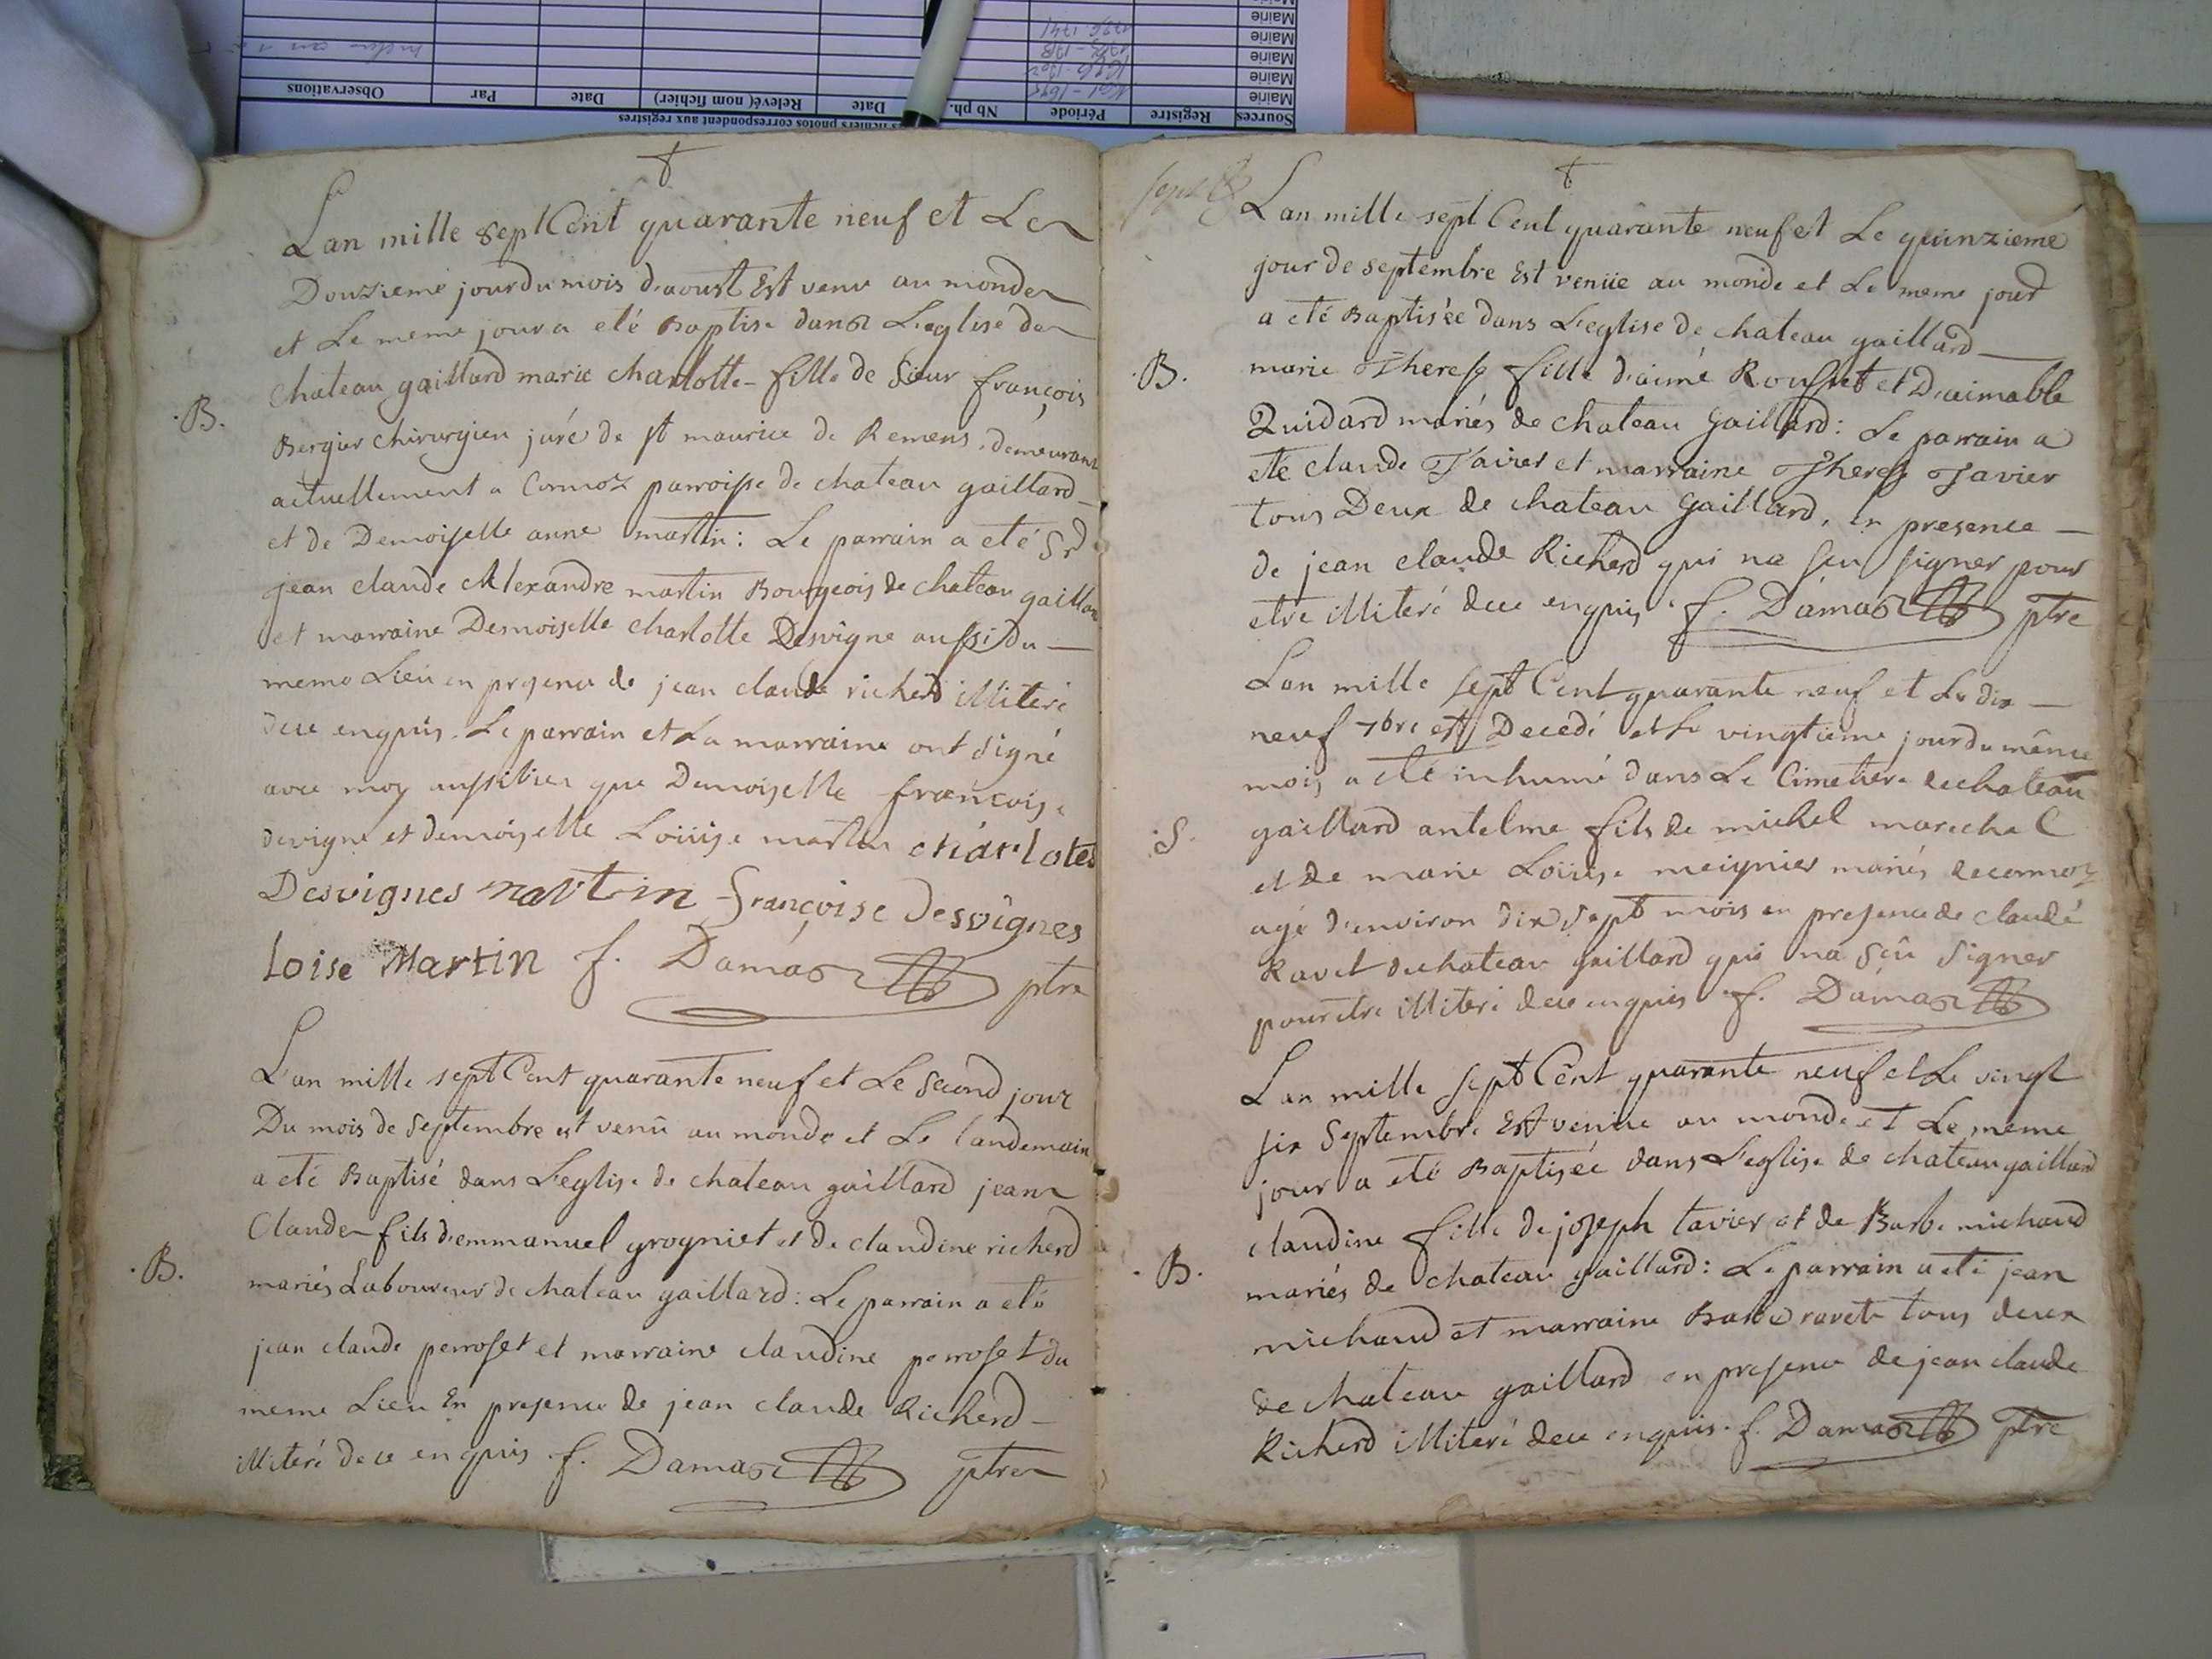 Sources Registre Période Nb ph. Date Relevé( nom fichier) Date Par Observations
Mairie
Mairie
Mairie
Mairie
Mairie
Lan mille sept Cent quarante neuf et Le
Douzieme jour du mois d'aoust Est venu au monde
et Le meme jour a eté Baptise dans L'eglise de
chateau gaillard marie charlotte fille de Sieur françois
.B.
Bergier chirurgien juré de st maurice de Remens, demeurant
actuellement a Cormoz parroisse de chateau gaillard
et de Demoiselle anne martin: Le parrain a eté Sr
jean claude Alexandre martin Bourgeois de chateau gaillard
et marraine Demoiselle charlotte Desvigne aussi du
meme Lieu en presence de jean claude richerd illiteré
de ce enquis. Le parrain et La marraine ont signé
avec moy aussi bien que Demoiselle françoise
devigne et demoiselle Loüise martin charlotes
Desvignes martin Françoise Desvignes
loise Martin f. Damas ptre
L'an mille sept Cent quarante neuf et Le Second jour
Du mois de Septembre est venû au monde et Le landemain
a eté Baptisé dans L'eglise de chateau gaillard jean
Claude fils d'emmanuel grogniet et de claudine richerd
.B.
mariés Laboureurs de chateau gaillard: Le parrain a eté
jean claude perroset et marraine claudine perroset du
meme Lieu En presence de jean claude Richerd
illiteré de ce enquis f. Damas ptre
Lan mille sept Cent quarante neuf et Le quinzieme
jour de septembre Est venüe au monde et Le meme jour
a eté Baptisée dans L'eglise de chateau gaillard
.B.
marie Therese fille d'aimé Rousset et D'aimable
Quidard mariés de chateau Gaillard: Le parrain a
eté claude Tavier et marraine Therese Tavier
tous Deux de chateau Gaillard, en presence
de jean claude Richerd qui na seu signer pour
etre illiteré de ce enquis. f. Damas ptre
Lan mille sept Cent quarante neuf et Le dix
neuf 7bre est Decedé et Le vingtieme jour du même
mois a eté inhumé dans Le Cimetiere de chateau
.S.
gaillard antelme fils de michel marechal
et de marie Loüise meignier mariés de cormoz
agé d'environ dix sept mois en presence de claude
Ravet de chateau gaillard qui na seû signer
pour etre illiteré de ce enquis f. Damas
Lan mille sept Cent quarante neuf et Le vingt
six Septembre Est venue au monde et Le meme
jour a eté Baptisée dans L'eglise de chateau gaillard
claudine fille de joseph tavier et de Barbe michaud
.B.
mariés de chateau gaillard: Le parrain a eté jean
michaud et marraine Barbe ravet tous deux
de chateau gaillard en presence de jean claude
Richerd illiteré de ce enquis. f. Damas ptre